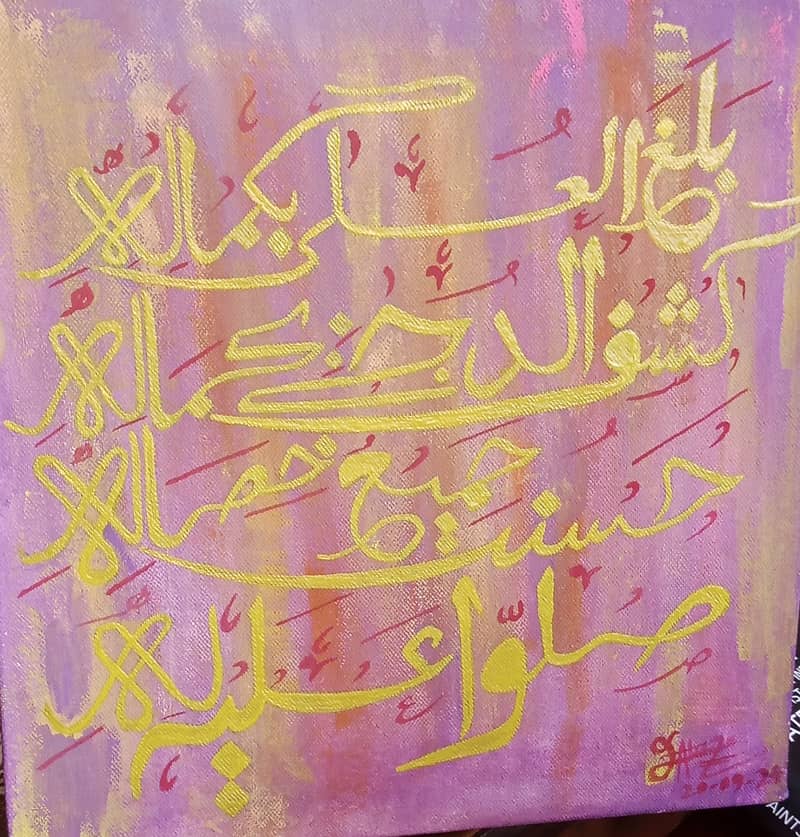 بلغ العلى بكماله
كشف الدجى بجماله
حسنت جميع خصاله
صلوا عليه وآله
20-09-24
AINT